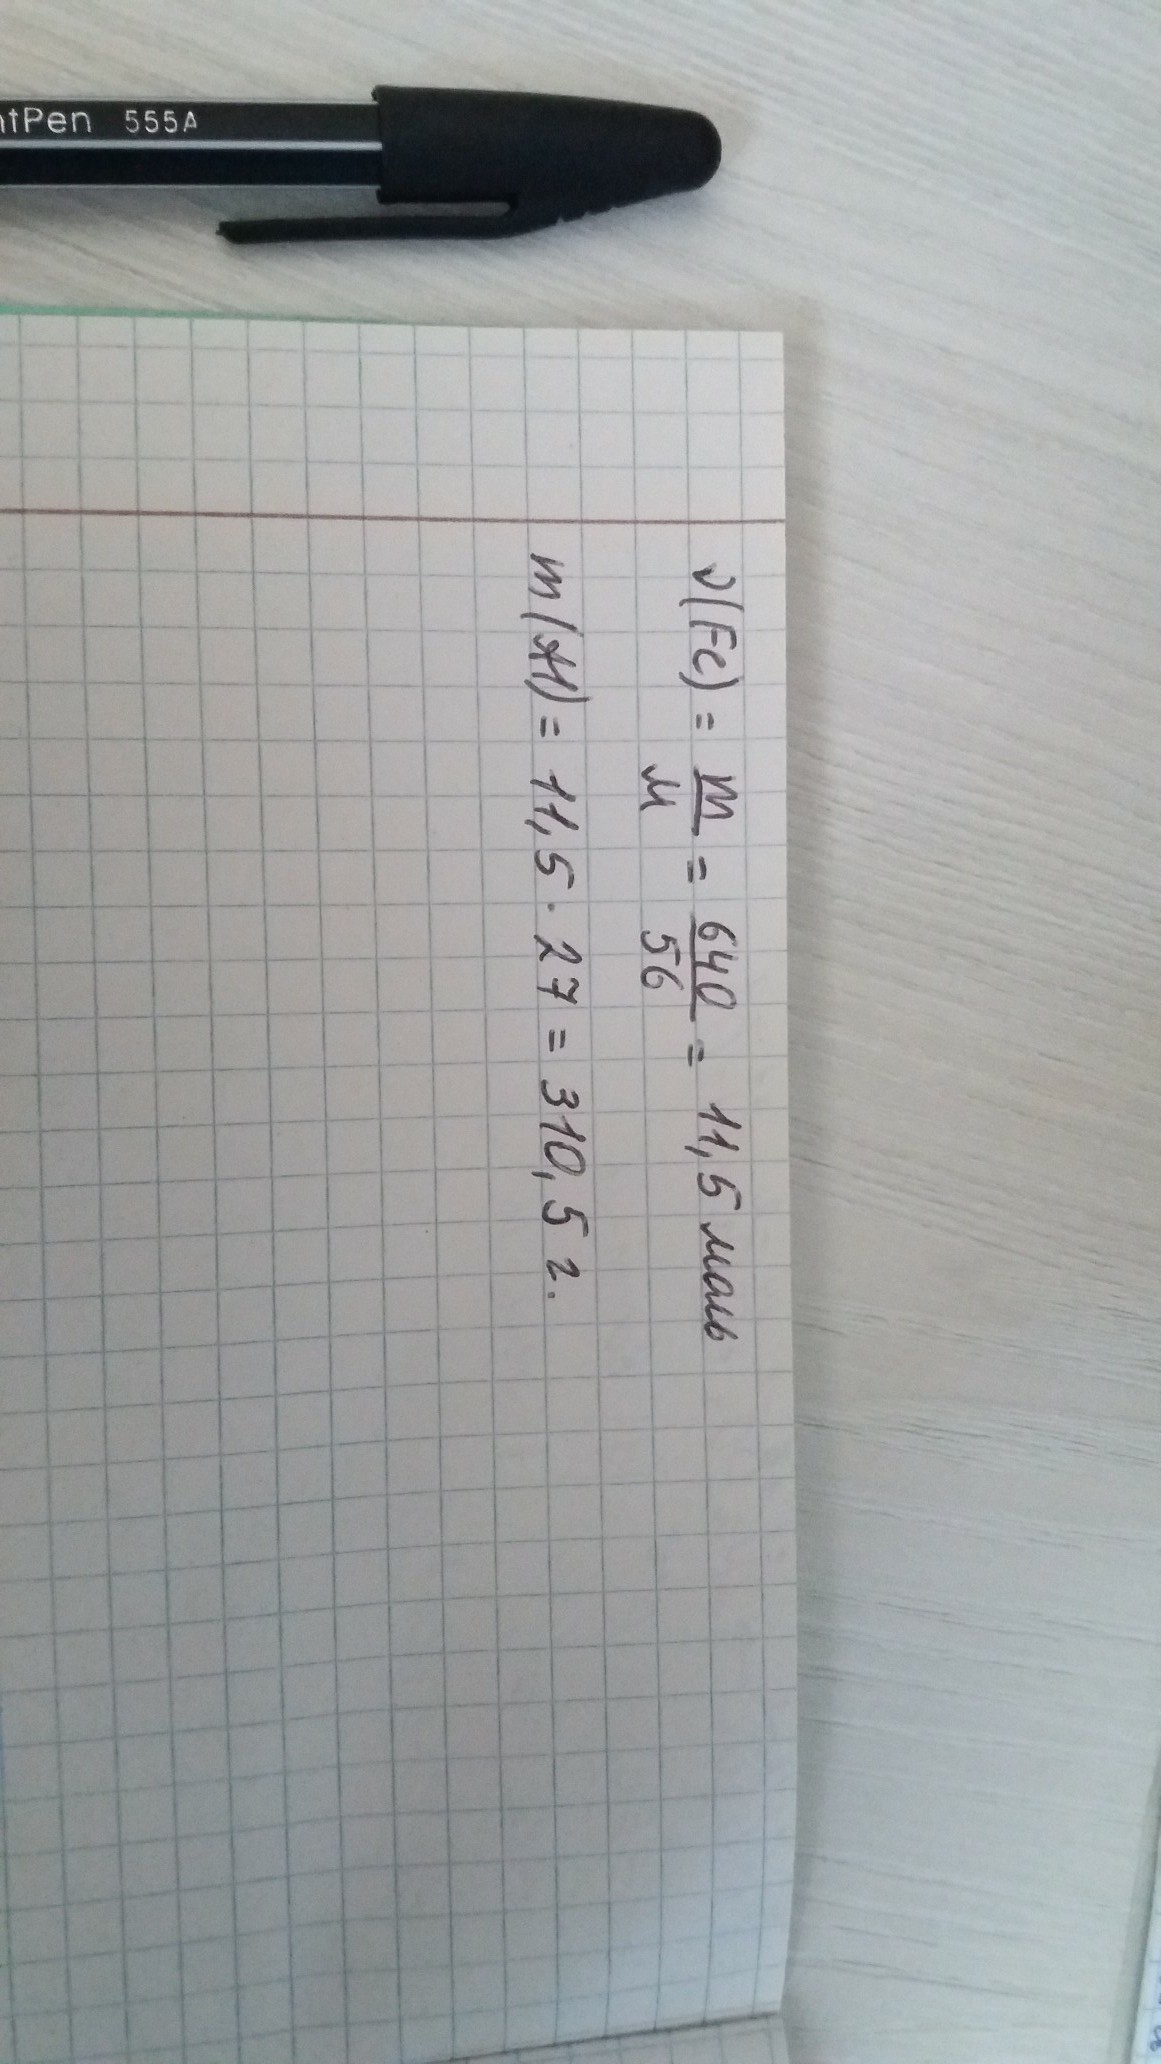 ntPen 555A
ν(Fe) = m/M = 640/56 = 11,5 моль
m(Al) = 11,5 · 27 = 310,5 г.